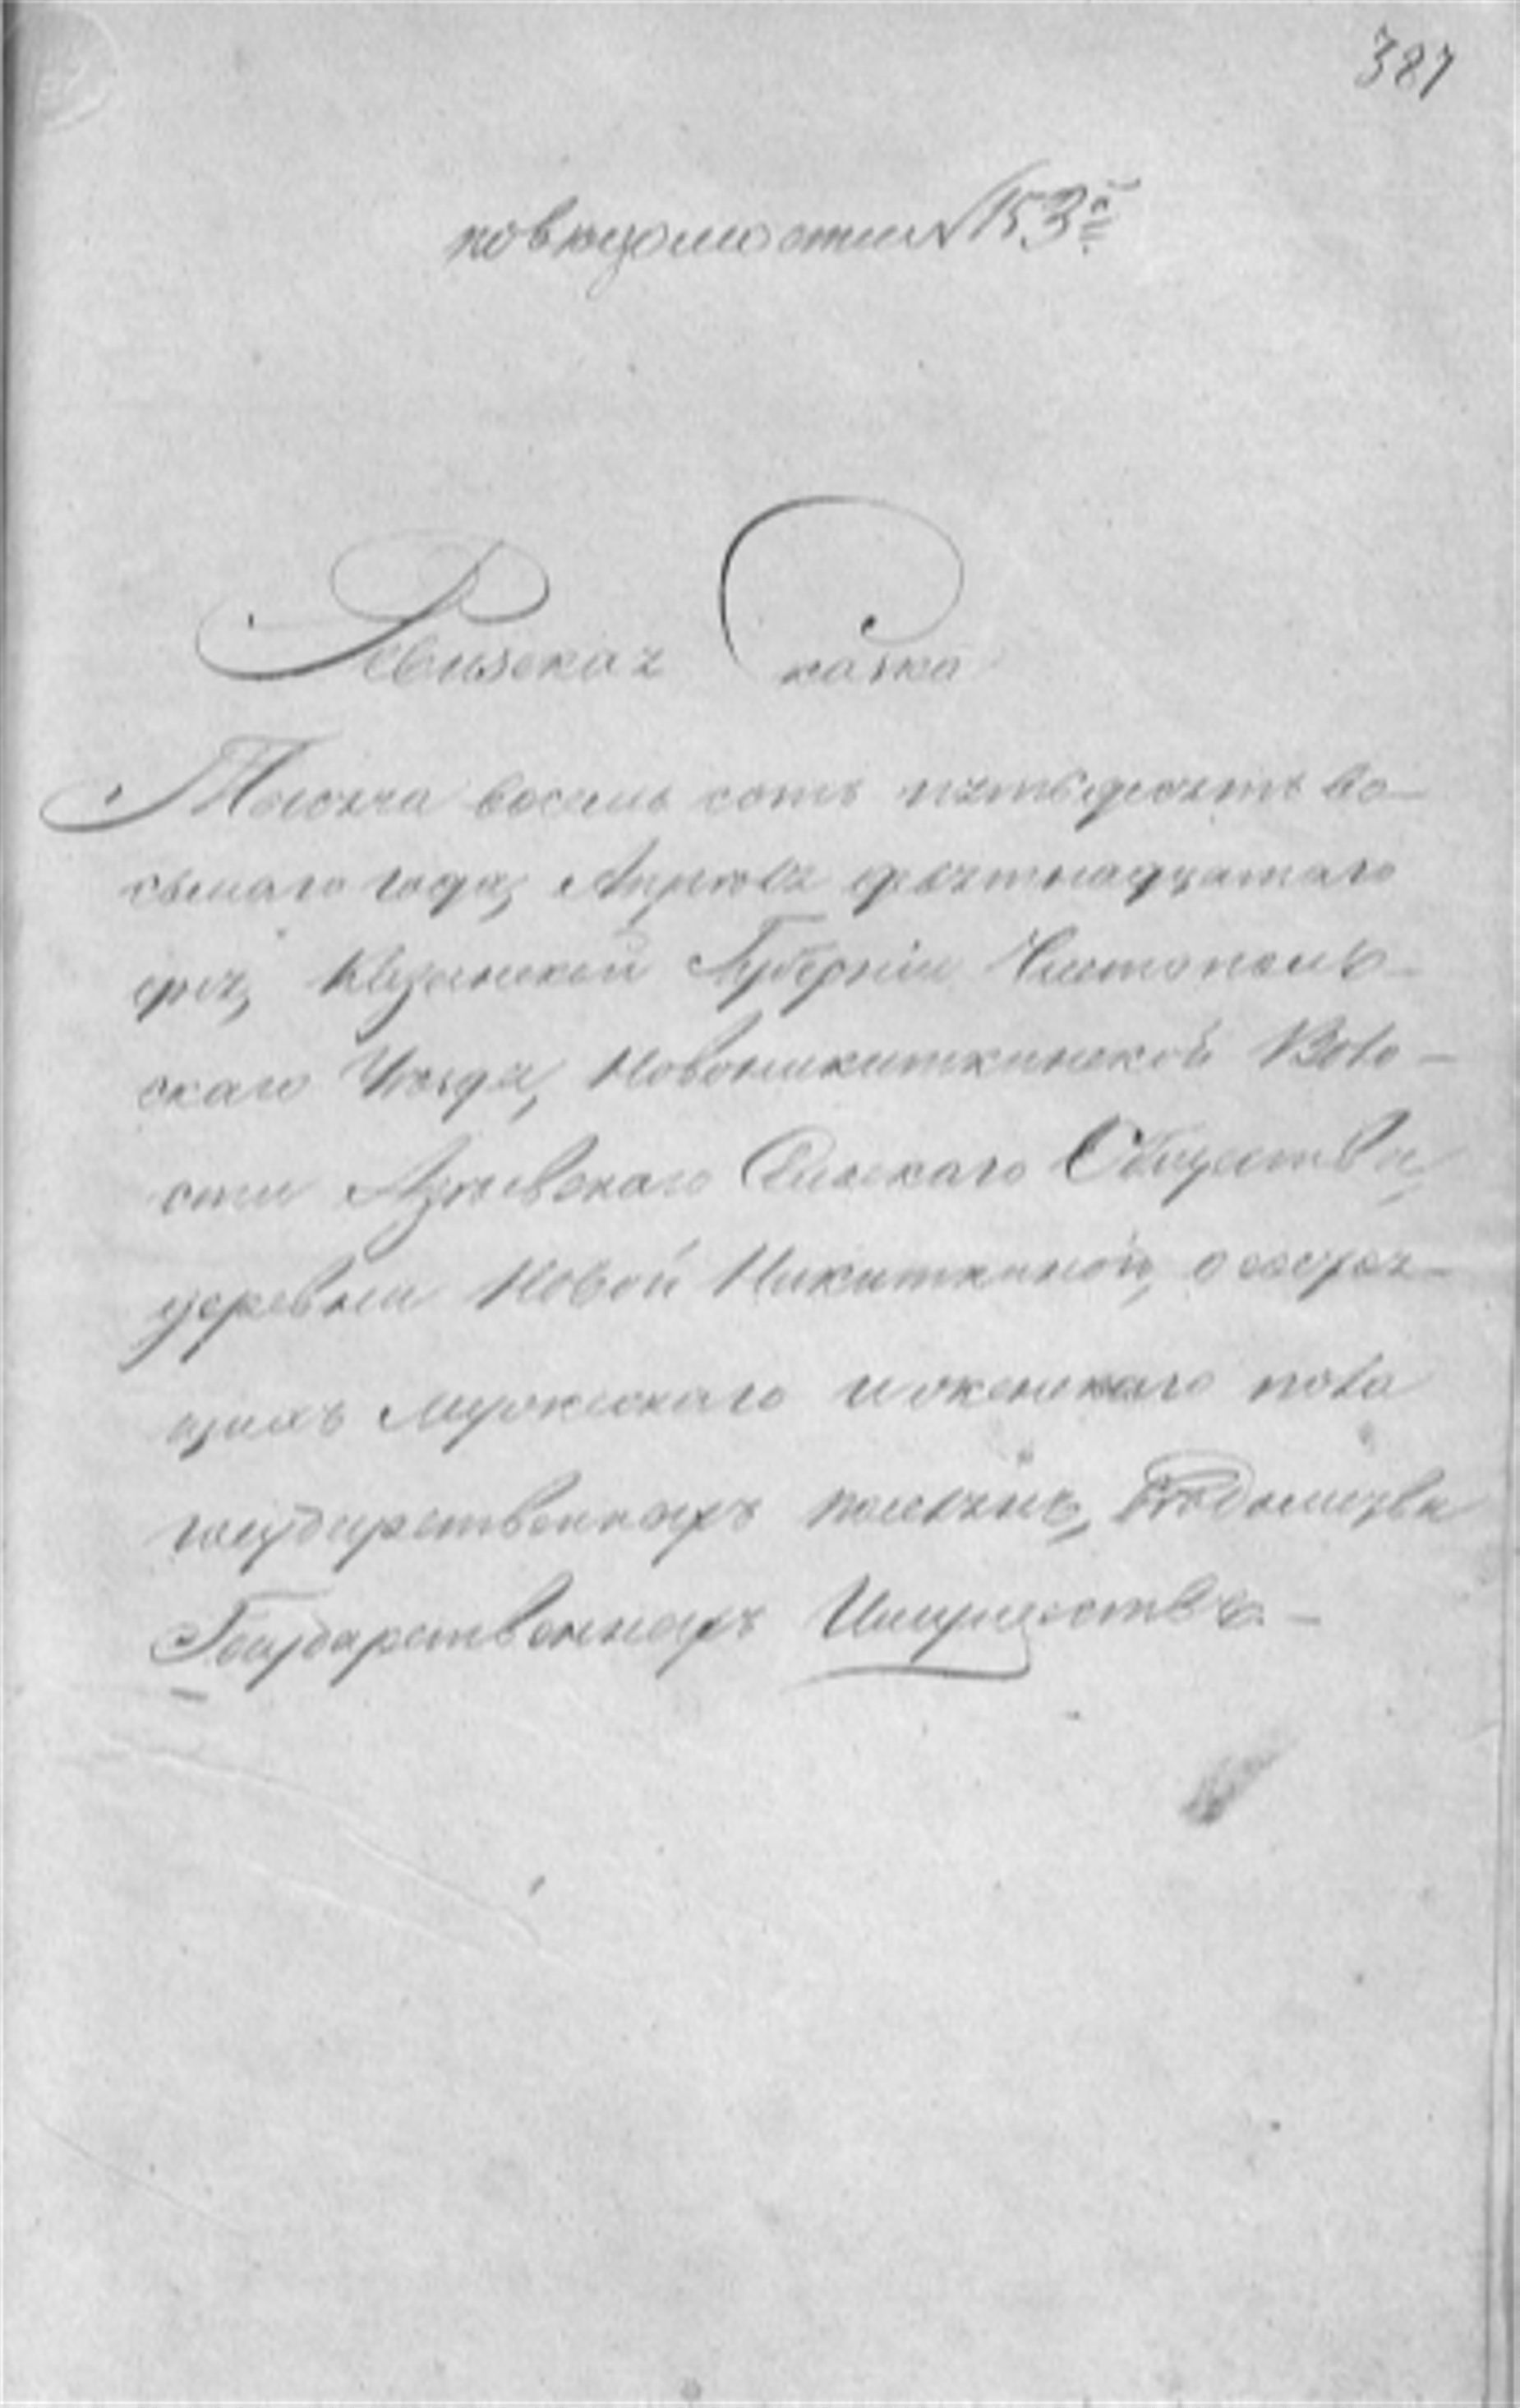 387
по вѣдомости № 153й
Ревизская Сказка
Тысяча восемь сотъ пятьдесятъ во-
сьмаго года, Апреля девятнадцатаго
дня, Казанской Губерніи Чистополь-
скаго Уѣзда, Новоникиткинской Воло-
сти Сельскаго Общества,
деревни Новой Никиткиной, о состоя-
щихъ мужескаго и женскаго пола
государственныхъ поселянъ, Вѣдомства
Государственныхъ Имуществъ. –